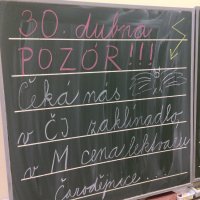 30. dubna
POZÓR!!!
Čeká nás
v ČJ zaklínadlo
v M cena lektvaru
Čarodějnice ....